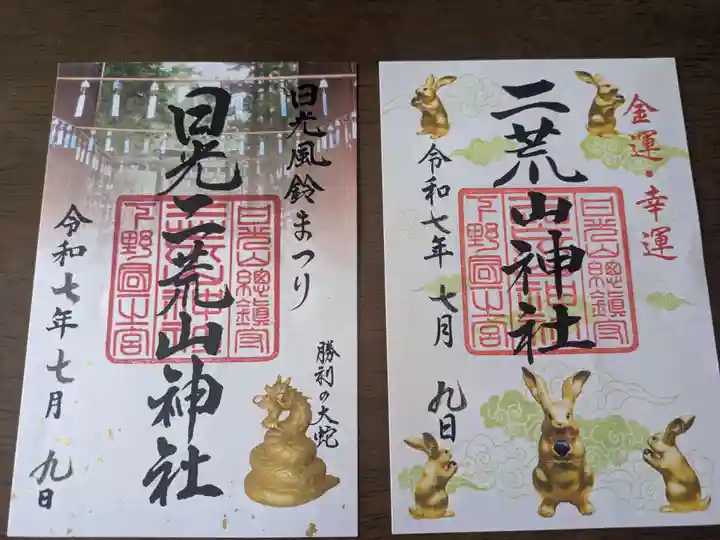 日光風鈴まつり
日光二荒山神社
令和七年七月九日
勝利の大蛇
日光山總鎮守
下野國一之宮
金運・幸運
二荒山神社
令和七年七月九日
日光山總鎮守
下野國一之宮